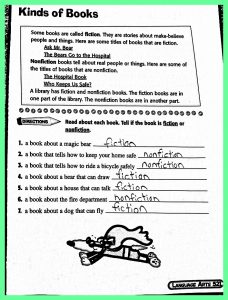 Kinds of Books
Some books are called fiction. They are stories about make-believe
people and things. Here are some titles of books that are fiction.
Ask Mr. Bear
The Bears Go to the Hospital
Nonfiction books tell about real people or things. Here are some of
the titles of books that are nonfiction.
The Hospital Book
Who Keeps Us Safe?
A library has fiction and nonfiction books. The fiction books are in
one part of the library. The nonfiction books are in another part.
DIRECTIONS Read about each book. Tell if the book is fiction or
nonfiction.
1. a book about a magic bear fiction
2. a book that tells how to keep your home safe nonfiction
3. a book that tells how to ride a bicycle safely nonfiction
4. a book about a bear that can draw fiction
5. a book about a house that can talk fiction
6. a book about the fire department nonfiction
7. a book about a dog that can fly fiction
LANGUAGE ARTS